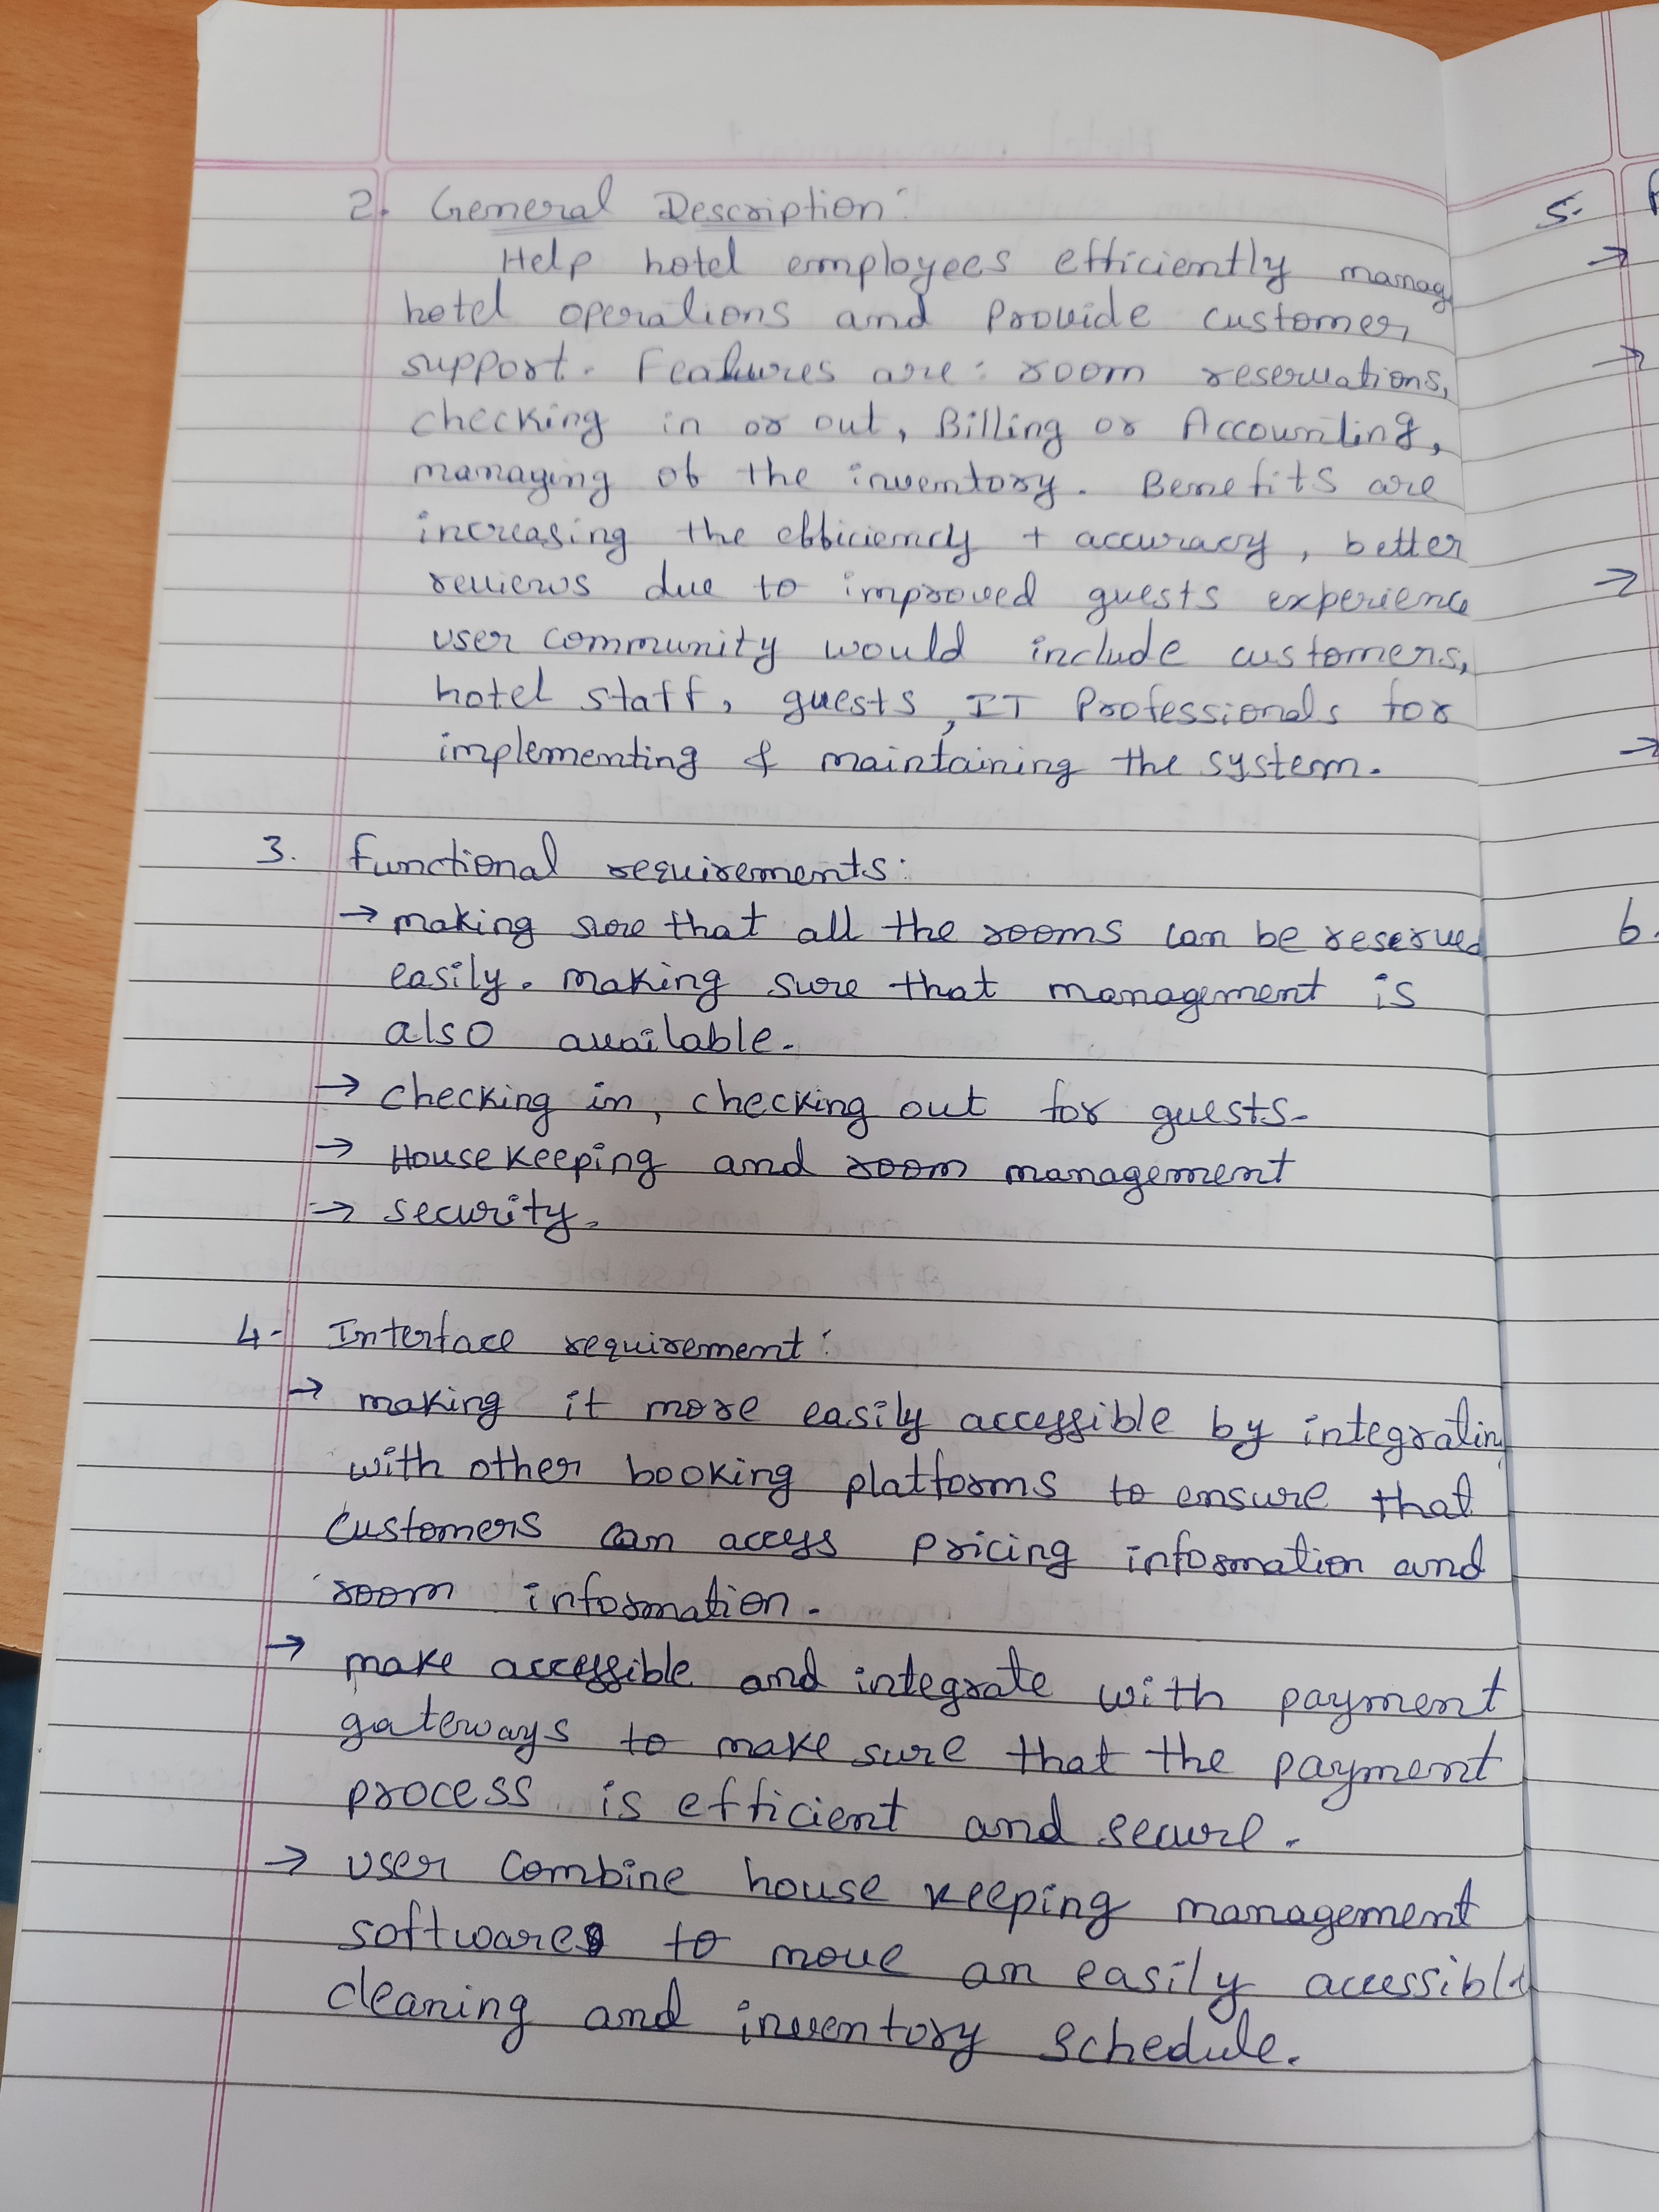 2. General Description:
Help hotel employees efficiently manag
hotel operations and Provide customer
support. Features are: room reservations,
checking in or out, Billing or Accounting,
managing of the inventory. Benefits are
increasing the efficiency + accuracy, better
reviews due to improved guests experience
user community would include customers,
hotel staff, guests, IT Professionals for
implementing & maintaining the system.
3. Functional requirements:
→ making sure that all the rooms can be reserved
easily. making sure that management is
also available.
→ checking in, checking out for guests.
→ House keeping and room management
→ security.
4. Interface requirement:
→ making it more easily accessible by integrating
with other booking platforms to ensure that
customers can access pricing information and
room information.
→ make accessible and integrate with payment
gateways to make sure that the payment
process is efficient and secure.
→ user combine house keeping management
softwares to move an easily accessible
cleaning and inventory schedule.
5.
→
→
→
→
6.